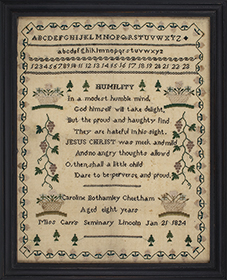 ABCDEFGHIJKLMNOPQRSTUVWXYZ
abcdefghiklmnopqrstuvwxyz
1 2 3 4 5 6 7 8 9 10 11 12 13 14 15 16 17 18 19 20 21 22 23
HUMILITY
In a modest humble mind,
God himself will take delight,
But the proud and haughty find
They are hateful in his sight.
JESUS CHRIST was meek and mild
And no angry thoughts allow'd
O, then, shall a little child
Dare to be perverse and proud.
Caroline Bothamley Cheetham
Aged eight years
Miss Carr's Seminary Lincoln Jan 21 1824